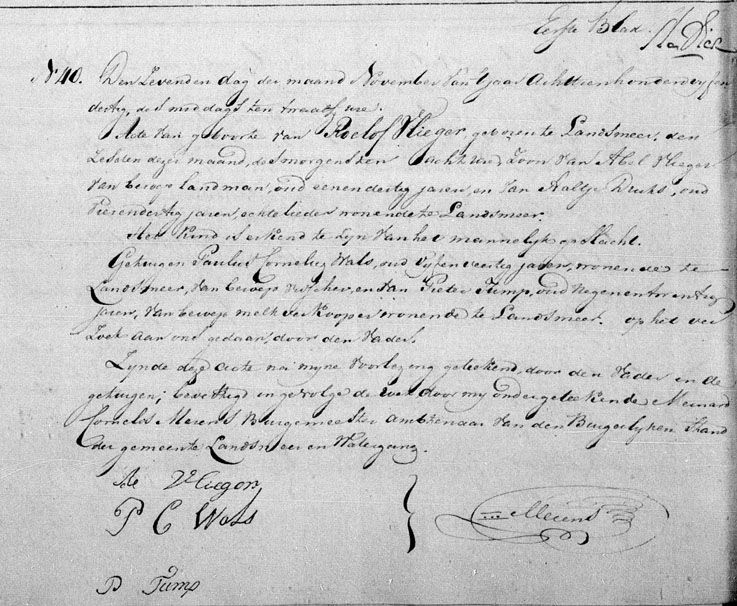 Eerste Blad.
No 40. Den Zevenden dag der maand November van 't jaar Achttienhonderd vyf en
dertig, des middags ten twaalf ure.
Acte van geboorte van Roelof Vlieger, geboren te Landsmeer, den
Zesden dezer maand, des morgens ten acht ure, Zoon van Abel Vlieger
van beroep landman, oud eenendertig jaren, en van Aaltje Dirks, oud
vierendertig jaren, echtelieden wonende te Landsmeer.
Het Kind is erkend te zyn van het mannelyk geslacht.
Getuigen Paulus Cornelis Wals, oud vyf en veertig jaren, wonende te
Landsmeer, van beroep visscher, en van Pieter Tump, oud negenentwintig
jaren, van beroep melkverkooper wonende te Landsmeer. op het ver
zoek aan ons gedaan, door den Vader.
Zynde deze acte na myne voorlezing geteekend, door den Vader en de
getuigen; bevestigd ingevolge de wet door my ondergeteekende Meinard
Cornelis Merens Burgemeester Ambtenaar van den Burgerlyken Stand
der gemeente Landsmeer en Watergang.
Ae Vlieger
P C Wals
Merens
P Tump